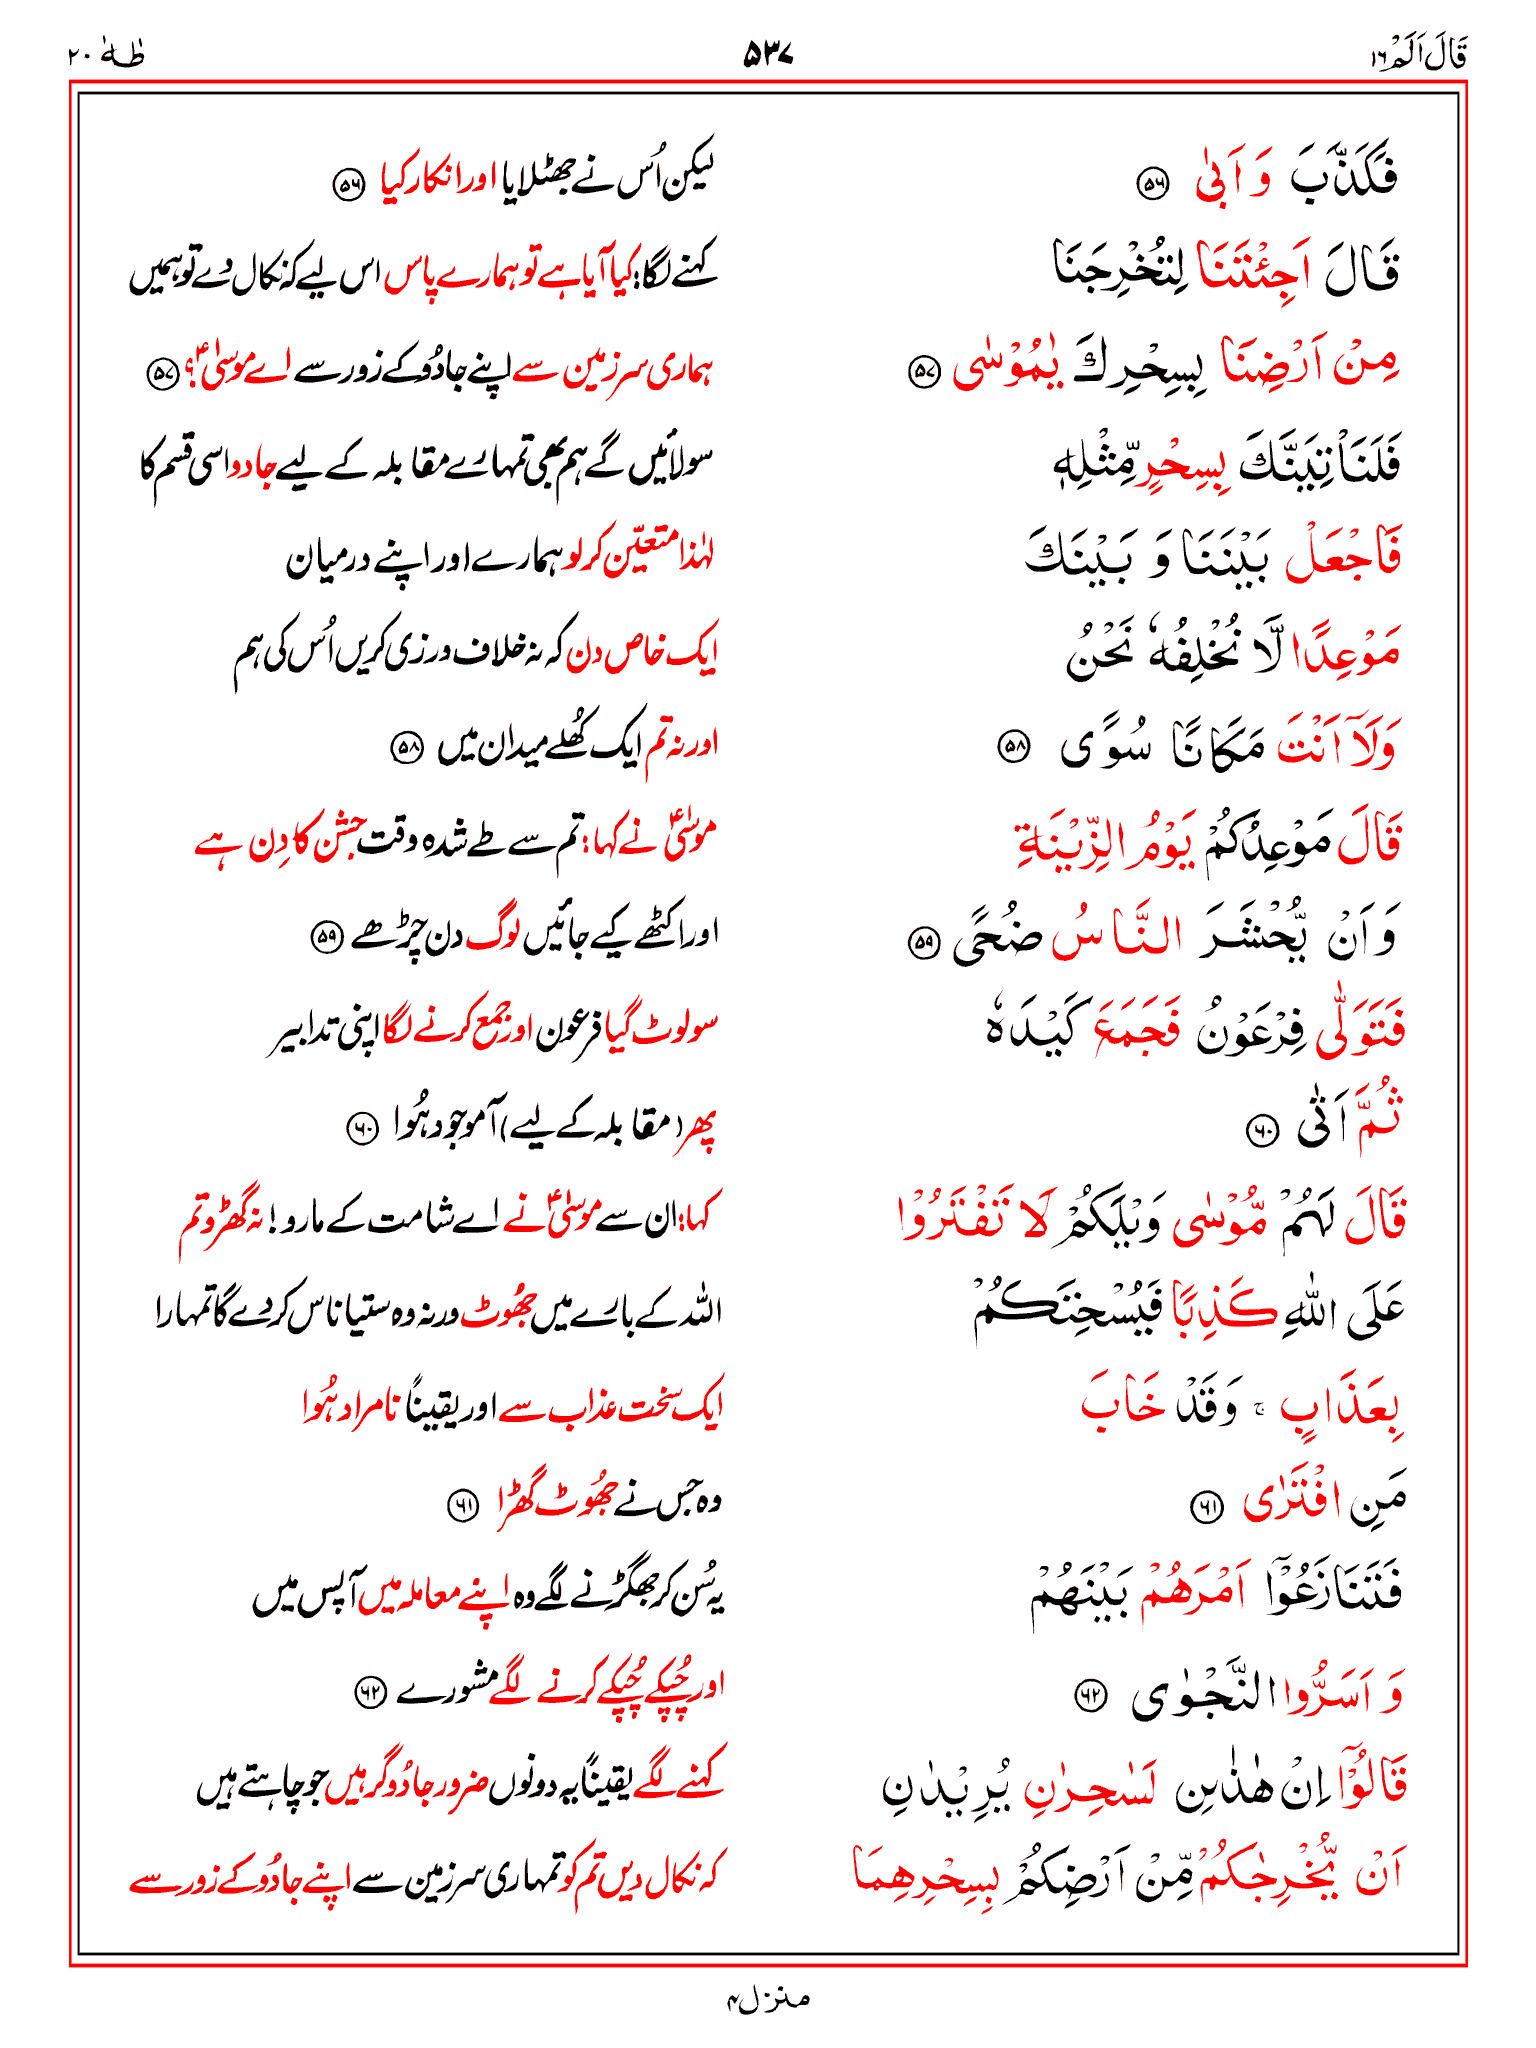 قَالَ اَلَمْ ١٦ ۵۳۷ طٰهٰ ۲۰
فَكَذَّبَ وَ اَبٰى ﴿۵۶﴾ لیکن اُس نے جھٹلایا اور انکار کیا ﴿۵۶﴾
قَالَ اَجِئْتَنَا لِتُخْرِجَنَا کہنے لگا: کیا آیا ہے تو ہمارے پاس اس لیے کہ نکال دے تو ہمیں
مِنْ اَرْضِنَا بِسِحْرِكَ يٰمُوْسٰى ﴿۵۷﴾ ہماری سرزمین سے اپنے جادُو کے زور سے اے موسیٰؑ؟ ﴿۵۷﴾
فَلَنَاْتِيَنَّكَ بِسِحْرٍ مِّثْلِهٖ سو لائیں گے ہم بھی تمہارے مقابلہ کے لیے جادو اسی قسم کا
فَاجْعَلْ بَيْنَنَا وَ بَيْنَكَ لہٰذا متعیّن کر لو ہمارے اور اپنے درمیان
مَوْعِدًا لَّا نُخْلِفُهٗ نَحْنُ ایک خاص دن کہ نہ خلاف ورزی کریں اُس کی ہم
وَلَآ اَنْتَ مَكَانًا سُوًى ﴿۵۸﴾ اور نہ تم ایک کھُلے میدان میں ﴿۵۸﴾
قَالَ مَوْعِدُكُمْ يَوْمُ الزِّيْنَةِ موسٰیؑ نے کہا: تم سے طے شدہ وقت جشن کا دِن ہے
وَ اَنْ يُّحْشَرَ النَّاسُ ضُحًى ﴿۵۹﴾ اور اکٹھے کیے جائیں لوگ دن چڑھے ﴿۵۹﴾
فَتَوَلّٰى فِرْعَوْنُ فَجَمَعَ كَيْدَهٗ سو لوٹ گیا فرعون اور جمع کرنے لگا اپنی تدابیر
ثُمَّ اَتٰى ﴿۶۰﴾ پھر (مقابلہ کے لیے) آ موجود ہُوا ﴿۶۰﴾
قَالَ لَهُمْ مُّوْسٰى وَيْلَكُمْ لَا تَفْتَرُوْا کہا: ان سے موسٰیؑ نے اے شامت کے مارو! نہ گھڑو تم
عَلَى اللّٰهِ كَذِبًا فَيُسْحِتَكُمْ اللہ کے بارے میں جھُوٹ ورنہ وہ ستیاناس کر دے گا تمہارا
بِعَذَابٍ ۚ وَقَدْ خَابَ ایک سخت عذاب سے اور یقیناً نامراد ہُوا
مَنِ افْتَرٰى ﴿۶۱﴾ وہ جس نے جھُوٹ گھڑا ﴿۶۱﴾
فَتَنَازَعُوْٓا اَمْرَهُمْ بَيْنَهُمْ یہ سُن کر جھگڑنے لگے وہ اپنے معاملہ میں آپس میں
وَ اَسَرُّوا النَّجْوٰى ﴿۶۲﴾ اور چُپکے چُپکے کرنے لگے مشورے ﴿۶۲﴾
قَالُوْٓا اِنْ هٰذٰىنِ لَسٰحِرٰنِ يُرِيْدٰنِ کہنے لگے یقیناً یہ دونوں ضرور جادُوگر ہیں جو چاہتے ہیں
اَنْ يُّخْرِجٰكُمْ مِّنْ اَرْضِكُمْ بِسِحْرِهِمَا کہ نکال دیں تم کو تمہاری سرزمین سے اپنے جادُو کے زور سے
منزل ۴